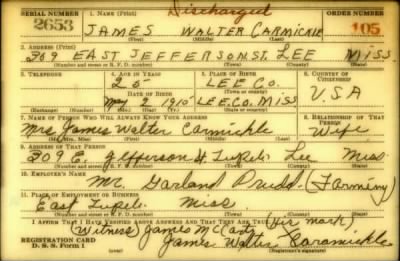 SERIAL NUMBER
1. NAME (Print)
Discharged
ORDER NUMBER
2653
JAMES WALTER CARMICKLE
105
(First) (Middle) (Last)
2. ADDRESS (Print)
309 EAST JEFFERSON ST. LEE MISS.
(Number and street or R. F. D. number) (Town) (County) (State)
3. TELEPHONE
4. AGE IN YEARS
5. PLACE OF BIRTH
6. COUNTRY OF CITIZENSHIP
25
LEE CO.
DATE OF BIRTH
(Town or county)
May 2 1915
LEE CO. MISS
USA
(Exchange) (Number)
(Mo.) (Day) (Yr.)
(State or country)
7. NAME OF PERSON WHO WILL ALWAYS KNOW YOUR ADDRESS
8. RELATIONSHIP OF THAT PERSON
Mrs James Walter Carmickle
Wife
(Mr., Mrs., Miss) (First) (Middle) (Last)
9. ADDRESS OF THAT PERSON
309 E. Jefferson St Tupelo Lee Miss.
(Number and street or R. F. D. number) (Town) (County) (State)
10. EMPLOYER'S NAME
Mr. Garland (Farming)
11. PLACE OF EMPLOYMENT OR BUSINESS
East Tupelo Miss.
(Number and street or R. F. D. number) (Town) (County) (State)
I AFFIRM THAT I HAVE VERIFIED ABOVE ANSWERS AND THAT THEY ARE TRUE.
(His mark)
(Witness) James McCarty
REGISTRATION CARD
D. S. S. Form 1
James Walter Caramickle